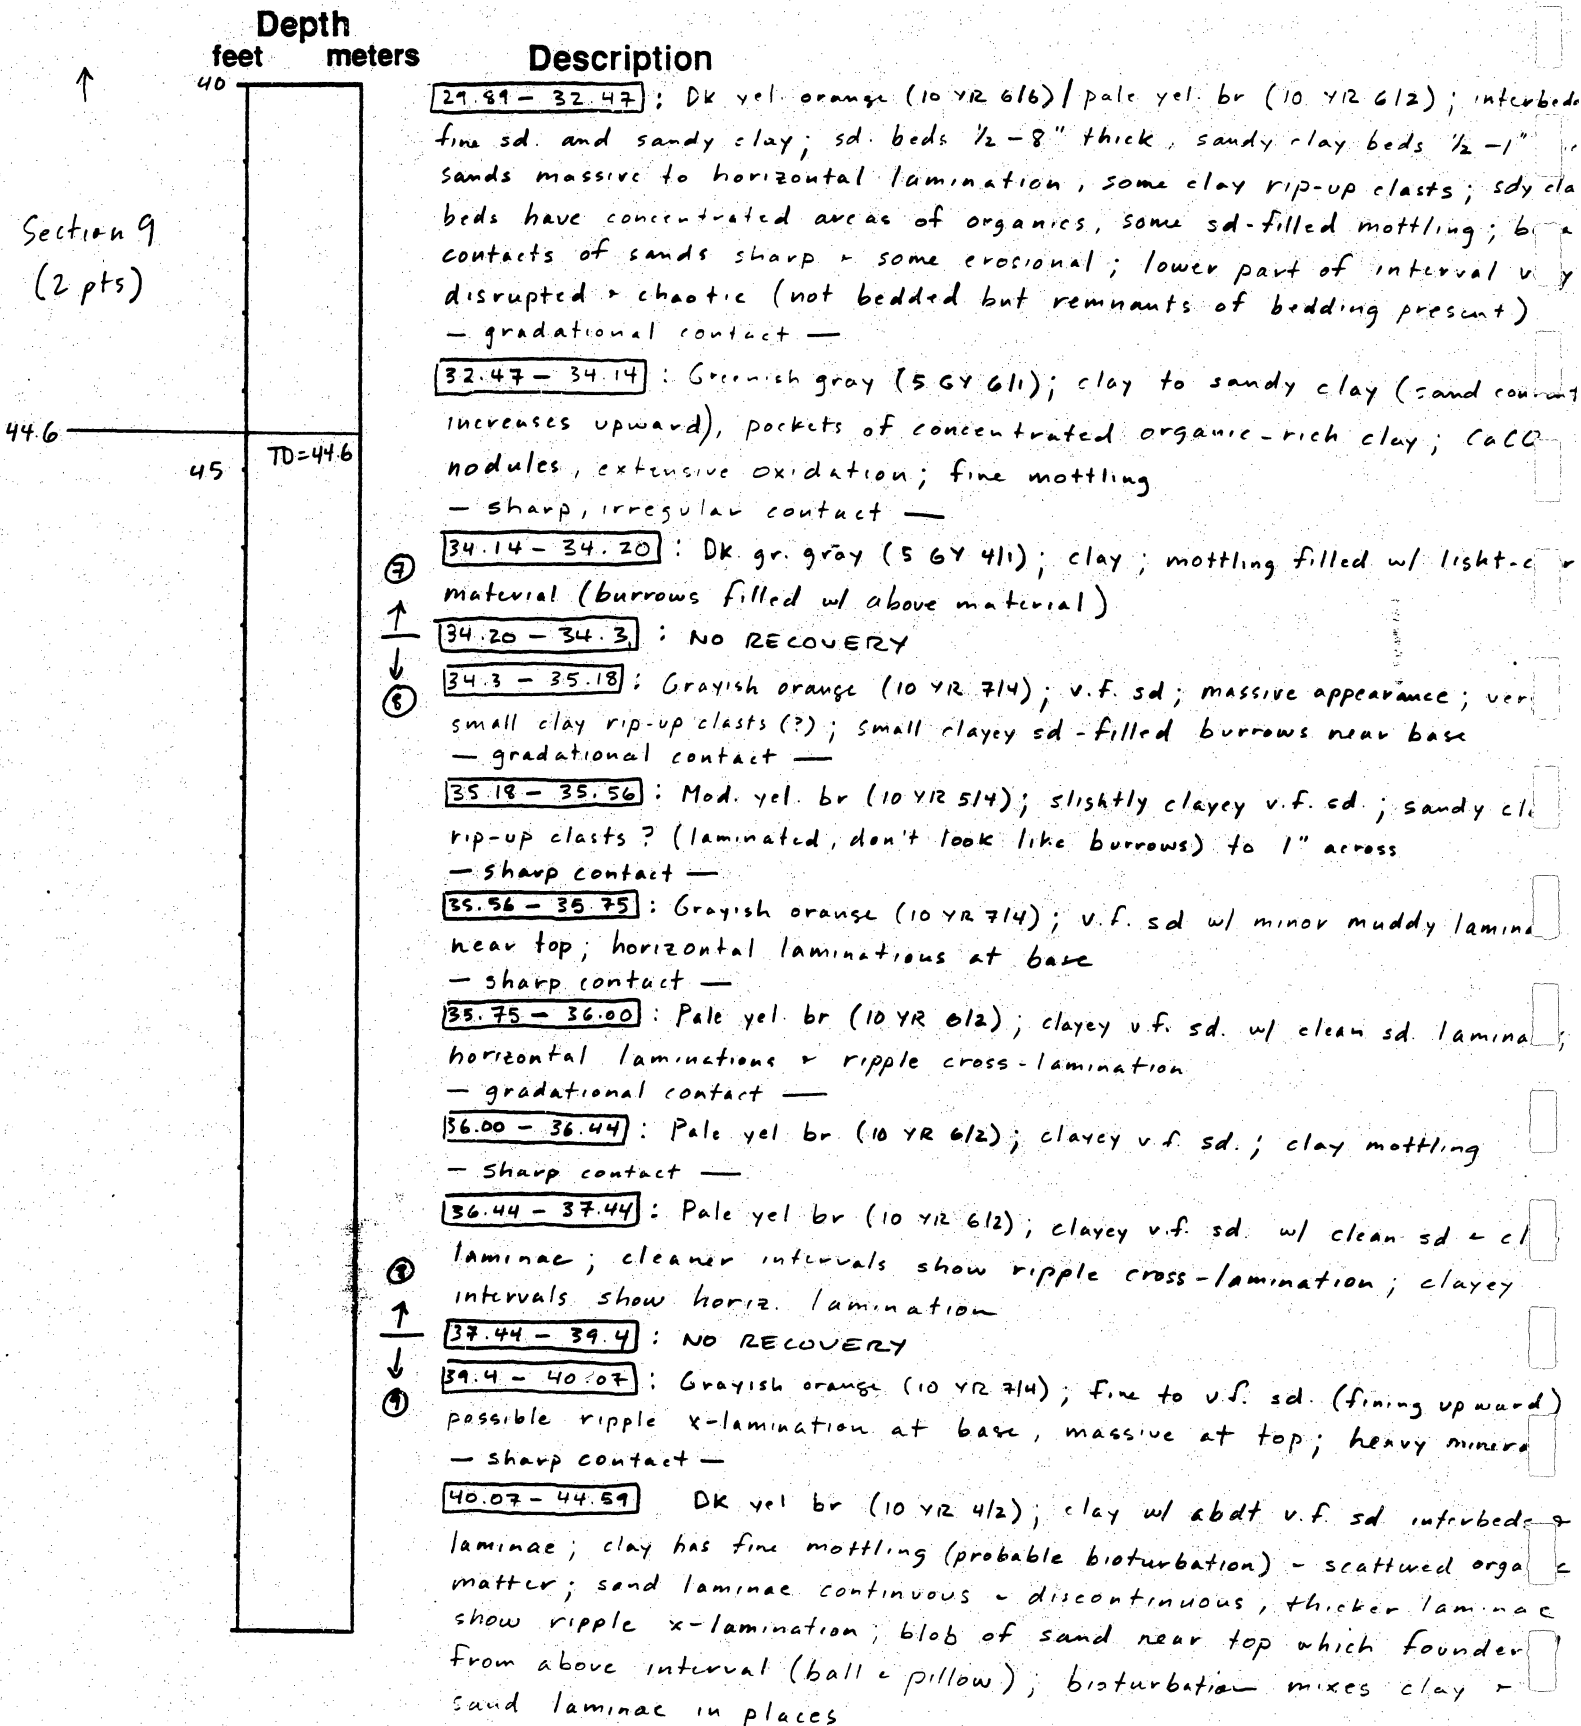 Depth
feet meters Description
↑ 40
29.89 - 32.47 : DK yel. orange (10 YR 6/6) / pale yel. br (10 YR 6/2) ; interbed
fine sd. and sandy clay; sd. beds 1/2 - 8" thick, sandy clay beds 1/2 - 1"
sands massive to horizontal lamination, some clay rip-up clasts; sdy cla
beds have concentrated areas of organics, some sd-filled mottling;
Section 9
contacts of sands sharp + some erosional; lower part of interval
(2 pts)
disrupted + chaotic (not bedded but remnants of bedding present)
— gradational contact —
32.47 - 34.14 : Greenish gray (5 GY 6/1); clay to sandy clay (sand content
increases upward), pockets of concentrated organic-rich clay; CaCO
44.6
TD=44.6
45
nodules, extensive oxidation; fine mottling
— sharp, irregular contact —
34.14 - 34.20 : DK gr. gray (5 GY 4/1); clay; mottling filled w/ light-
⑦
material (burrows filled w/ above material)
↑
34.20 - 34.3 : NO RECOVERY
↓
34.3 - 35.18 : Grayish orange (10 YR 7/4); v.f. sd; massive appearance; ver
⑧
small clay rip-up clasts (?); small clayey sd-filled burrows near base
— gradational contact —
35.18 - 35.56 : Mod. yel. br (10 YR 5/4); slightly clayey v.f. sd.; sandy cl
rip-up clasts? (laminated, don't look like burrows) to 1" across
— sharp contact —
35.56 - 35.75 : Grayish orange (10 YR 7/4); v.f. sd w/ minor muddy lamina
near top; horizontal laminations at base
— sharp contact —
35.75 - 36.00 : Pale yel. br (10 YR 6/2); clayey v.f. sd. w/ clean sd. lamina ;
horizontal laminations + ripple cross-lamination
— gradational contact —
36.00 - 36.44 : Pale yel br (10 YR 6/2); clayey v.f. sd.; clay mottling
— sharp contact —
36.44 - 37.44 : Pale yel br (10 YR 6/2); clayey v.f. sd. w/ clean sd + cl
laminae; cleaner intervals show ripple cross-lamination; clayey
⑧
intervals show horiz. lamination
↑
37.44 - 39.4 : NO RECOVERY
↓
39.4 - 40.07 : Grayish orange (10 YR 7/4); fine to v.f. sd. (fining upward)
⑨
possible ripple x-lamination at base, massive at top; heavy minera
— sharp contact —
40.07 - 44.59 DK yel br (10 YR 4/2); clay w/ abdt v.f. sd interbeds +
laminae; clay has fine mottling (probable bioturbation) - scattered orga c
matter; sand laminae continuous - discontinuous, thicker laminae
show ripple x-lamination; blob of sand near top which founder
from above interval (ball + pillow); bioturbation mixes clay +
sand laminae in places